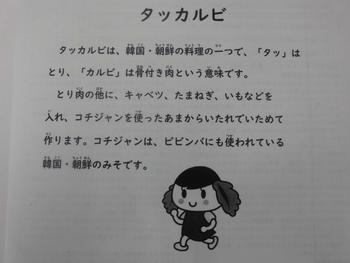 タッカルビ
タッカルビは、韓国・朝鮮の料理の一つで、「タッ」は
とり、「カルビ」は骨付き肉という意味です。
とり肉の他に、キャベツ、たまねぎ、いもなどを
入れ、コチジャンを使ったあまからいたれでいためて
作ります。コチジャンは、ビビンバにも使われている
韓国・朝鮮のみそです。